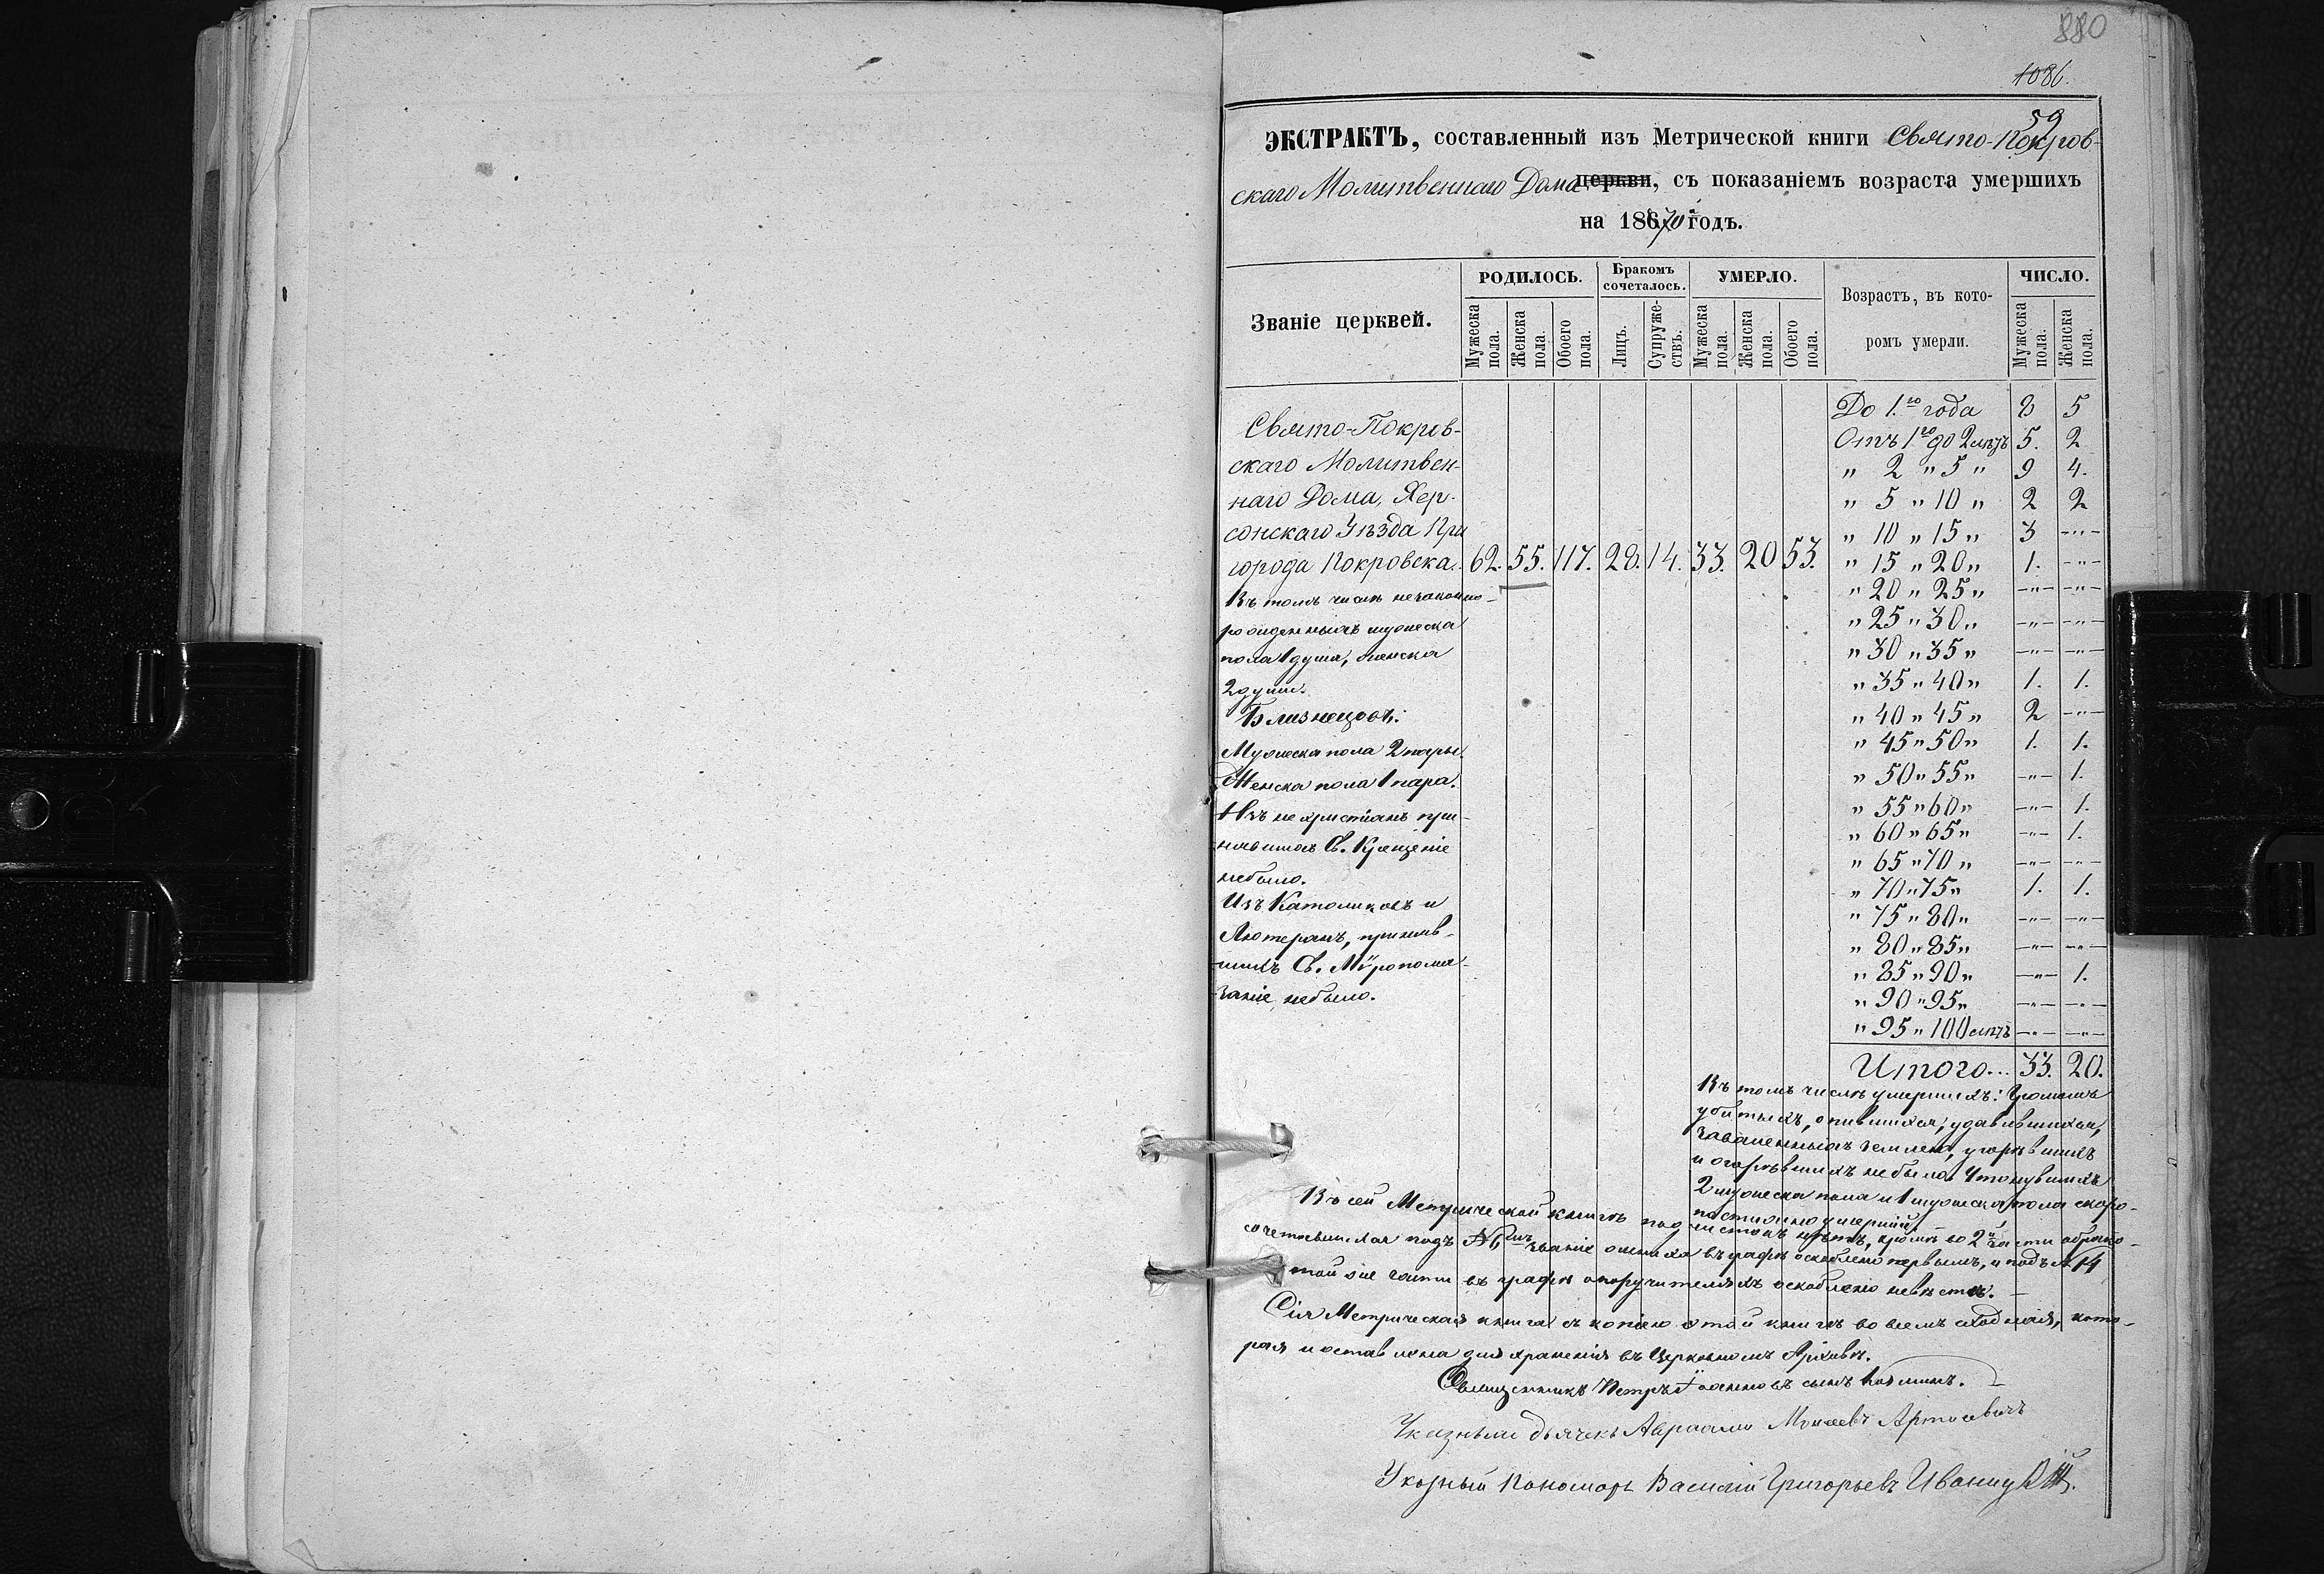 880
1086.
59
ЭКСТРАКТЪ, составленный изъ Метрической книги Свято-Покров-
скаго Молитвеннаго Дома церкви, съ показаніемъ возраста умершихъ
на 18670 годъ.
Званіе церквей.
РОДИЛОСЬ.
Бракомъ сочеталось.
УМЕРЛО.
Возрастъ, въ кото-
ромъ умерли.
ЧИСЛО.
Мужеска пола.
Женска пола.
Обоего пола.
Лицъ.
Супружествъ.
Мужеска пола.
Женска пола.
Обоего пола.
Мужеска пола.
Женска пола.
Свято-Покров-
скаго Молитвен-
наго Дома, Хер-
сонскаго Уѣзда При
города Покровска. 62. 55. 117. 28. 14. 33. 20 53.
Въ томъ числѣ незаконно-
рожденныхъ мужеска
пола 1 душа, женска
2 души.
Близнецовъ:
Мужеска пола 2 пары.
Женска пола 1 пара.
Изъ не христіанъ при-
нявшихъ Св. Крещеніе
небыло.
Изъ Католиковъ и
Лютеранъ, приняв-
шихъ Св. Мѵропома-
заніе небыло.
До 1.го года 8 5
Отъ 1го до 2 лѣтъ 5. 2
„ 2 „ 5 „ 9 4.
„ 5 „ 10 „ 2 2
„ 10 „ 15 „ 3 -„-
„ 15 „ 20 „ 1. -„-
„ 20 „ 25 „ -„- -„-
„ 25 „ 30 „ -„- -„-
„ 30 „ 35 „ -„- -„-
„ 35 „ 40 „ 1. 1.
„ 40 „ 45 „ 2 -„-
„ 45 „ 50 „ 1. 1.
„ 50 „ 55 „ -„- 1.
„ 55 „ 60 „ -„- 1.
„ 60 „ 65 „ -„- 1.
„ 65 „ 70 „ -„- -„-
„ 70 „ 75 „ 1. 1.
„ 75 „ 80 „ -„- -„-
„ 80 „ 85 „ -„- -„-
„ 85 „ 90 „ -„- 1.
„ 90 „ 95 „ -„- -„-
„ 95 „ 100 лѣтъ -„- -„-
Итого... 33. 20.
Въ томъ числѣ умершихъ: Громомъ
убитыхъ, опившихся, удавившихся,
заваленныхъ землею, угорѣвшихъ
и огорѣвшихъ небыло. Утонувшихъ
2 мужеска пола и 1 мужеска пола скоро-
постижно умершій.
Въ сей Метрической книгѣ подчистокъ нѣтъ, кромѣ во 2й части о брако-
сочетавшихся подъ № званіе жениха въ графѣ оскоблено первымъ, и подъ № 14
той же части въ графѣ о поручителяхъ оскоблено невѣстѣ.
Сія Метрическая книга съ копіею этой книги во всемъ сходная, кото-
рая и оставлена для храненія въ Церковномъ Архивѣ.
Священникъ Петръ Іоанновъ сынъ
Указный дьячекъ Авраамъ
Указный Пономарь Василій Григорьевъ